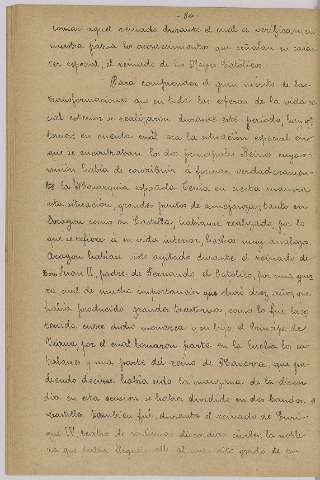 - 80 -
aquel reinado durante el cual se verifican en
nuestra patria los acontecimientos que señalan su carac-
ter especial, el reinado de los Reyes Católicos.
Para comprender el gran mérito de las
transformaciones que en todas las esferas de la vida so-
cial se realizaron durante este período, hemos
tomar en cuenta cual era la situación especial en
que se encontraban los dos principales Reinos cuya
unión había de contribuir á formar verdaderamen-
te la Monarquia española. Tenía en cierta manera
esta situación, grandes puntos de semejanza; tanto en
Aragon como en Castilla, habíanse realizado, por lo
que se refiere á su vida interior, hechos muy análogos.
Aragon habíase visto agitado durante el reinado de
Don Juan II, padre de Fernando el Católico, por una gue-
rra civil de mucha importancia que duró diez años, que
había producido grandes trastornos, como lo fué la so-
tenida entre dicho monarca y su hijo el Príncipe de
Viana, por el cual tomaron parte en la lucha los ca-
talanes y una parte del reino de Navarra, que pu-
diendo decirse había sido la manzana de la discor-
dia en esta ocasion se había dividido en dos bandos. A
Castilla tambien fué, durante el reinado de Enri-
que IV, teatro de continuas discordias civiles, la noble-
za que había llegado allí al mas alto grado de